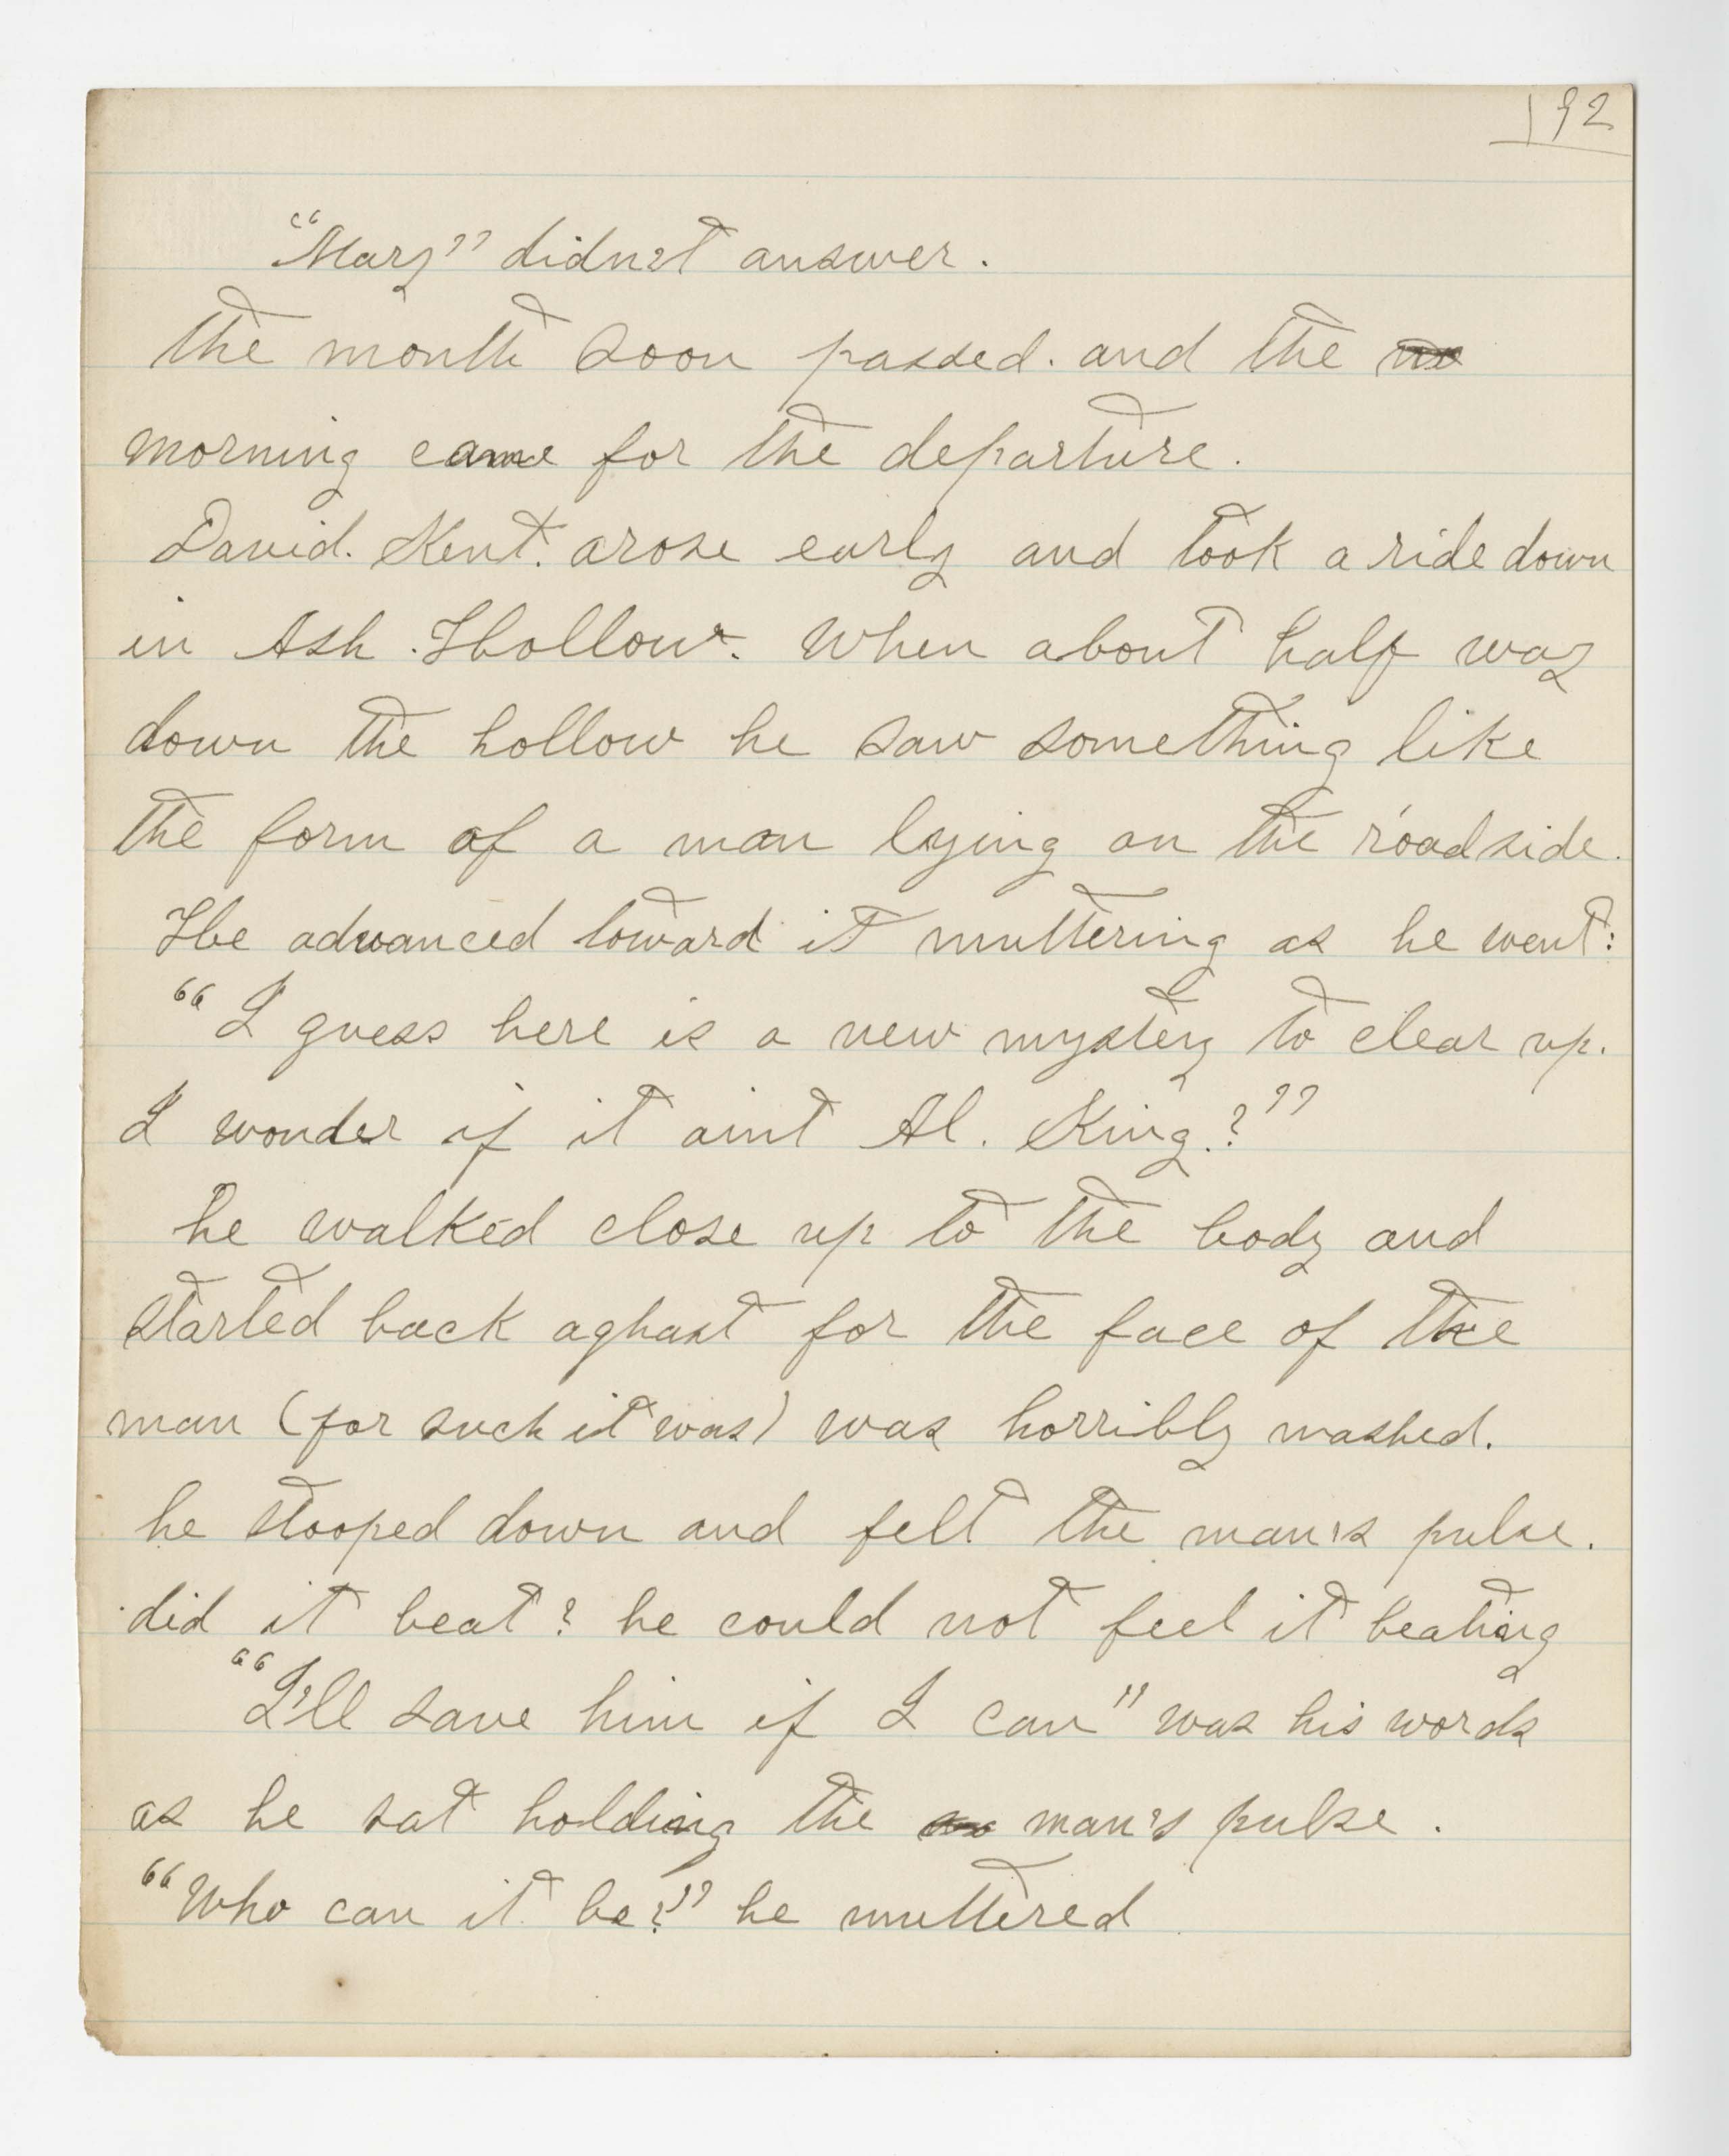 192
"Mary" didn't answer.
the month soon passed. and the
morning came for the departure.
David. Kent. arose early and took a ride down
in Ash. Hollow. When about half way
down the hollow he saw something like
the form of a man lying on the roadside.
He advanced toward it muttering as he went:
"I guess here is a new mystery to clear up.
I wonder if it aint Al. King.?"
he walked close up to the body and
started back aghast for the face of the
man (for such it was) was horribly mashed.
he stooped down and felt the man's pulse.
did it beat? he could not feel it beating
"I'll save him if I can" was his words
as he sat holding the man's pulse.
"Who can it be?" he muttered